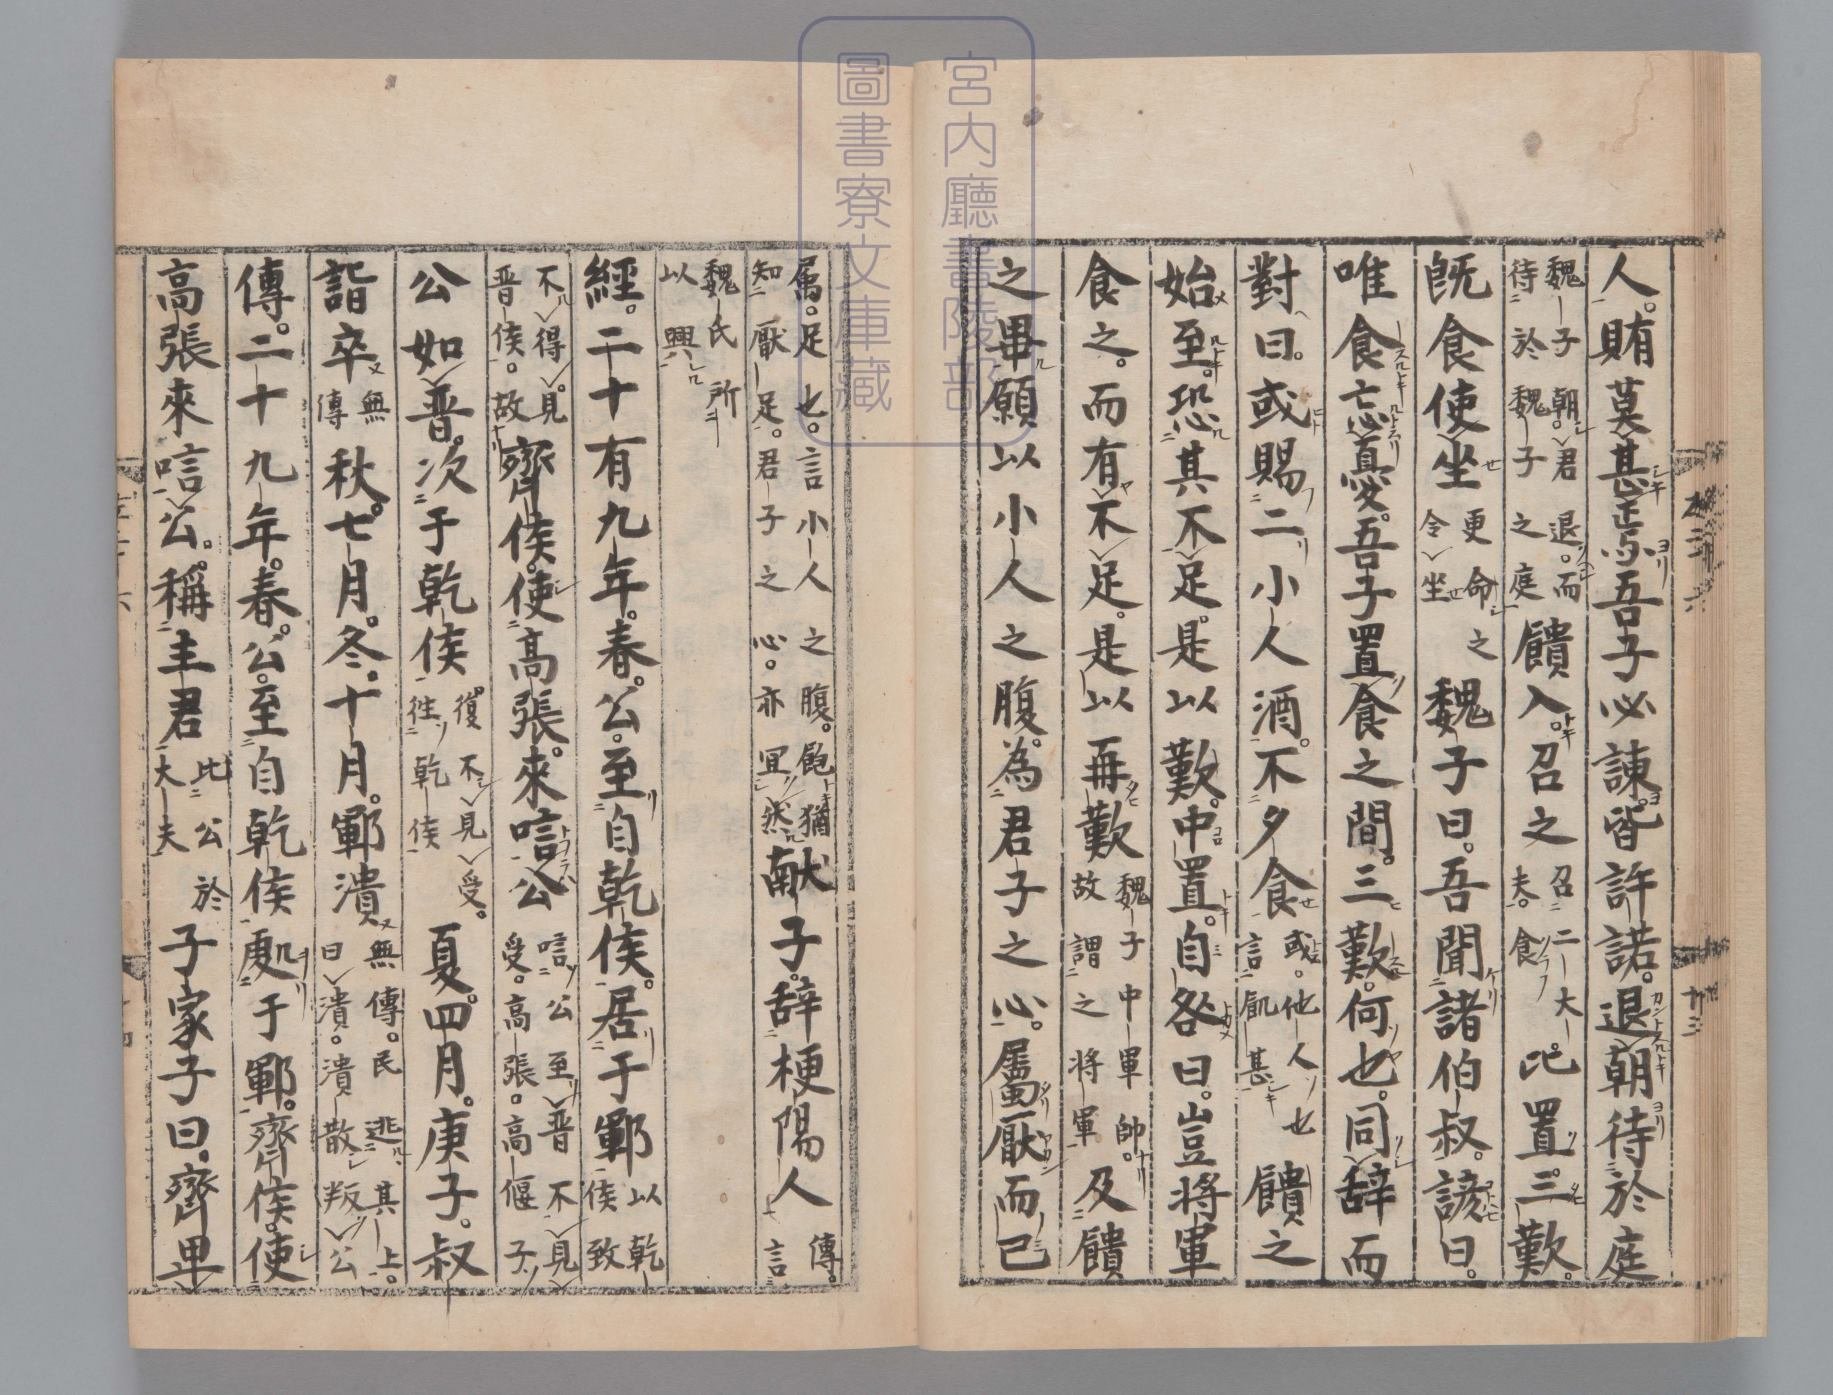 宮内廳書陵部
圖書寮文庫藏
人。賄莫甚焉吾子必諫。皆許諾。退朝待於庭
魏子朝。君退。而待於魏子之庭饋入。召之召二大夫。食比置。三歎。
既食使坐更命之令坐魏子曰。吾聞諸伯叔。諺曰。
唯食忘憂。吾子置食之間。三歎。何也。同辞而
對曰。或賜二小人酒。不夕食或。他人也言飢甚饋之
始至。恐其不足。是以歎。中置。自咎曰。豈將軍
食之。而有不足。是以再歎魏子中軍帥。故謂之將軍及饋
之畢願以小人之腹。為君子之心。屬厭而已
属。足也。言小人之腹。飽猶知厭足。君子之心。亦冝然献子。辞梗陽人傳。言
魏氏所以興
經。二十有九年。春。公。至自乾侯。居于鄆以乾侯致
不得。見晋侯。故齊侯。使高張。來唁公唁公至晋不見受。高張。高偃子
公如晋。次于乾侯復不見受。往乾侯夏。四月。庚子。叔
詣卒無傳秋。七月。冬。十月。鄆潰無傳。民逃其上。曰潰。潰散叛公
傳。二十九年。春。公。至自乾侯處于鄆。齊侯。使
高張來唁公。稱主君比公於大夫子家子曰。齊卑